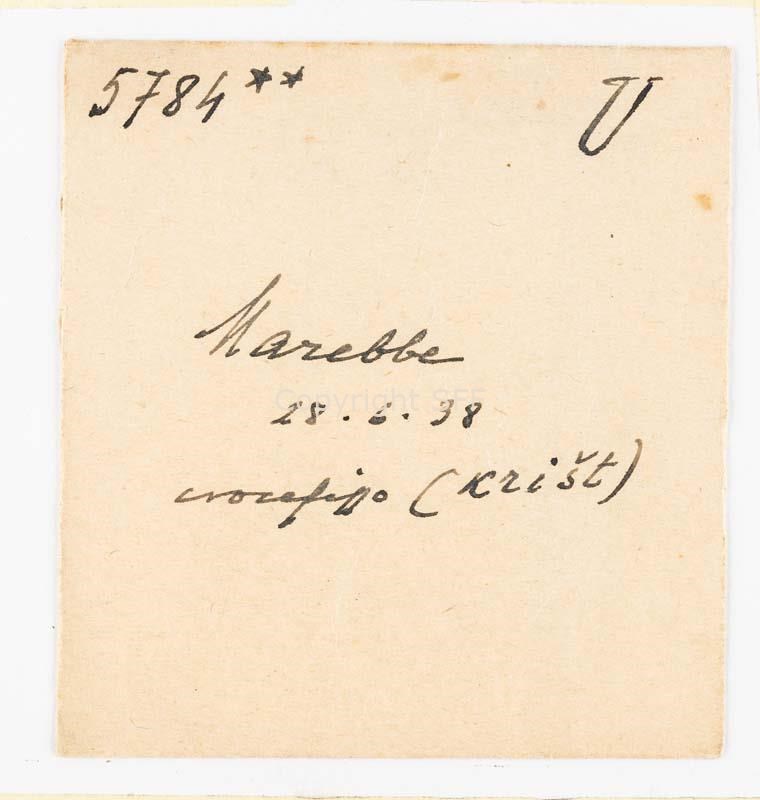 5784** U
Marebbe
Copyright SFF
28.6.38
crocefisso (krišt)